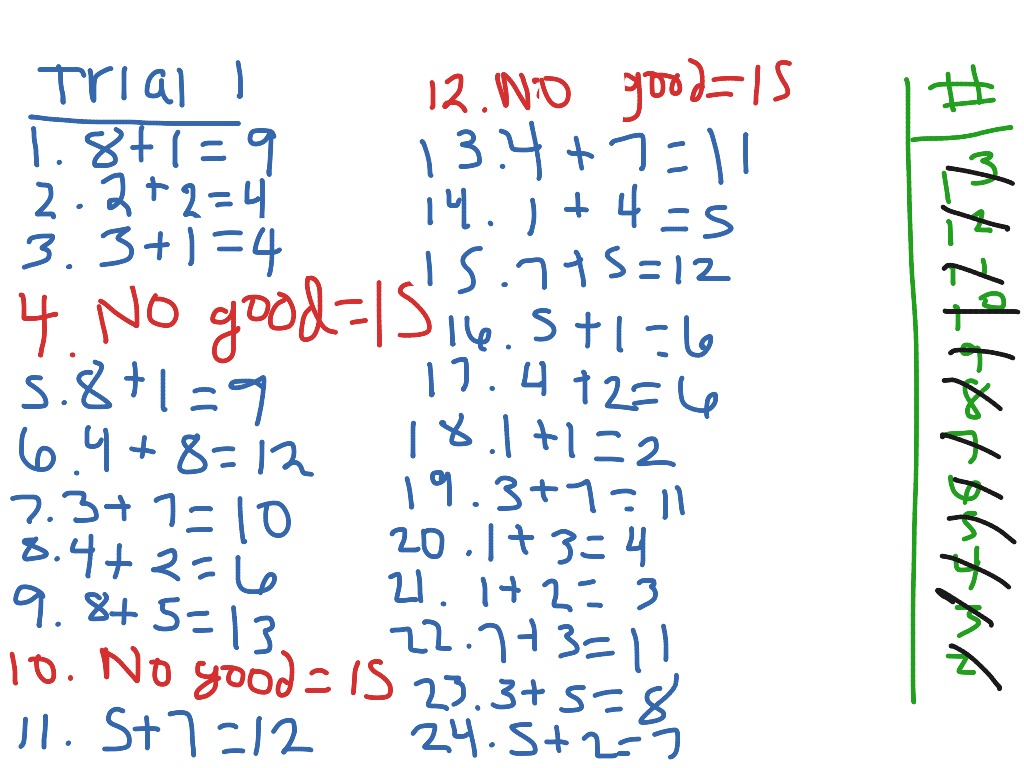 Trial 1
1. 8+1=9
2. 2+2=4
3. 3+1=4
4. No good=15
5. 8+1=9
6. 4+8=12
7. 3+7=10
8. 4+2=6
9. 8+5=13
10. No good=15
11. 5+7=12
12. No good=15
13. 4+7=11
14. 1+4=5
15. 7+5=12
16. 5+1=6
17. 4+2=6
18. 1+1=2
19. 3+7=11
20. 1+3=4
21. 1+2=3
22. 7+3=11
23. 3+5=8
24. 5+2=7
#
13
12
11
10
9
8
7
6
5
4
3
2